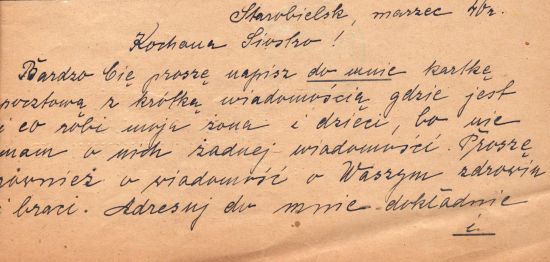 Starobielsk, marzec 40r.
Kochana Siostro!
Bardzo Cię proszę napisz do mnie kartkę
pocztową z krótką wiadomością gdzie jest
i co robi moja żona i dzieci, bo nie
mam o nich żadnej wiadomości. Proszę
również o wiadomość o Waszym zdrowiu
i braci. Adresuj do mnie dokładnie
i